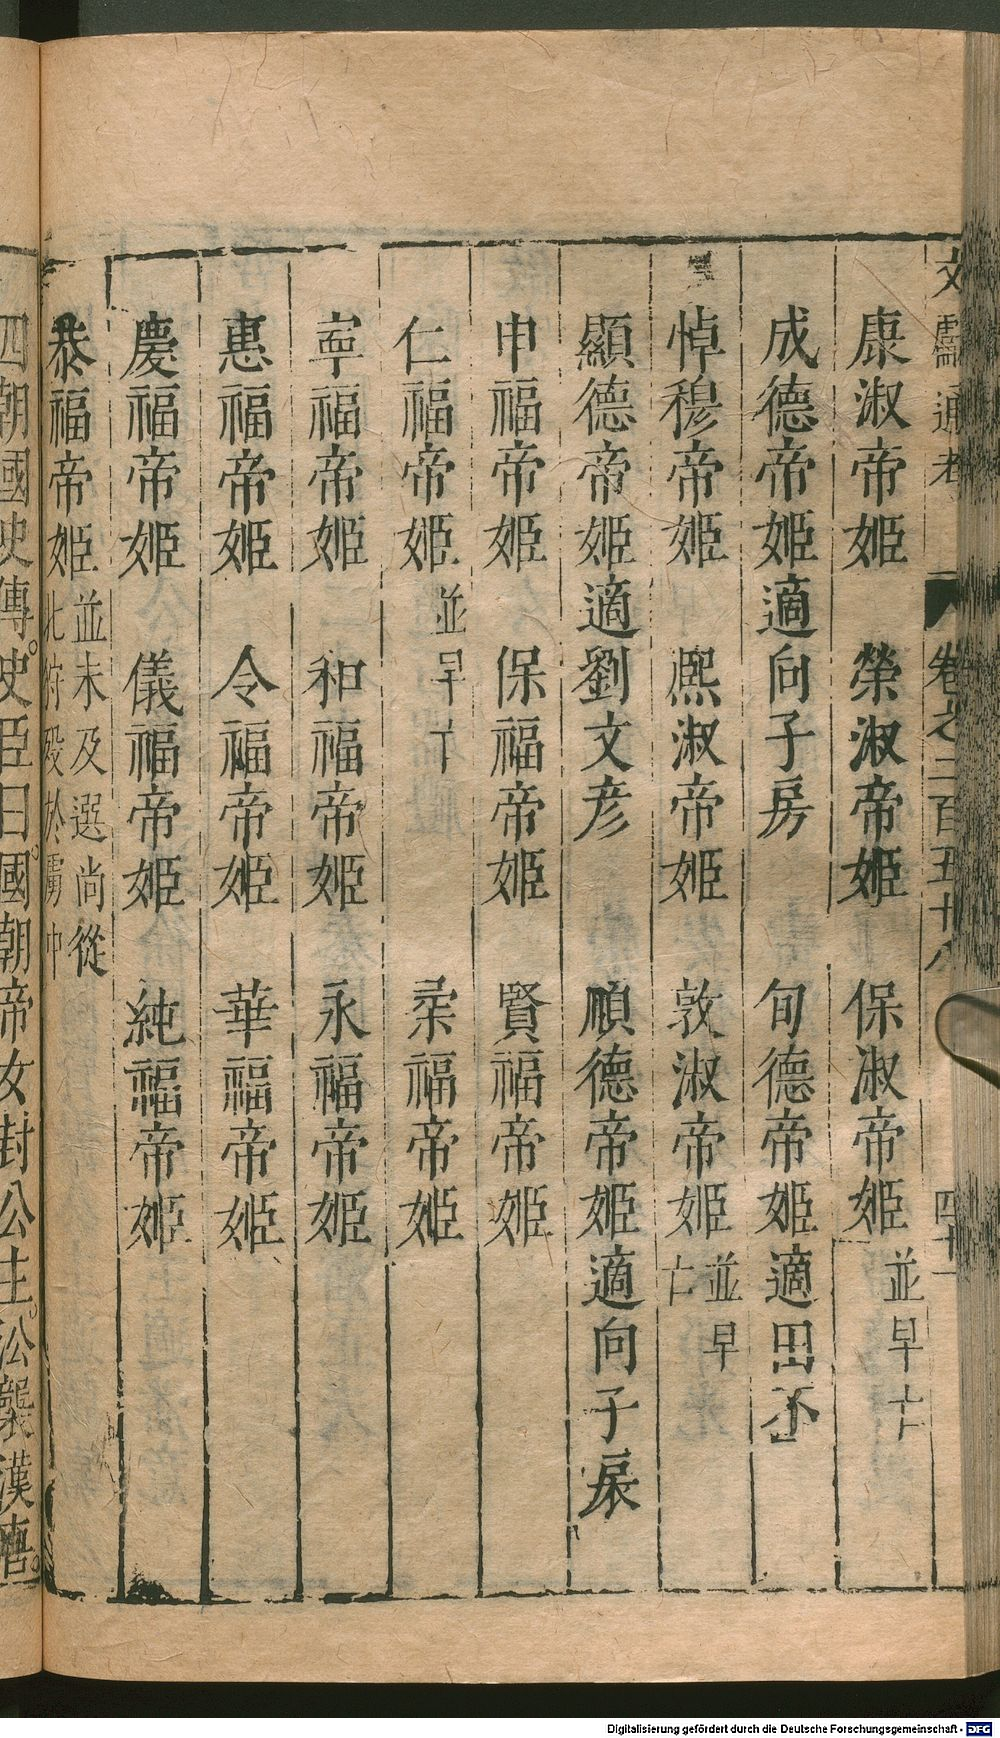 文獻通考 卷之二百五十八 四十一
康淑帝姬 榮淑帝姬 保淑帝姬 並早亡
成德帝姬適向子房 旬德帝姬適田丕
悼穆帝姬 熙淑帝姬 敦淑帝姬 並早亡
顯德帝姬適劉文彥 順德帝姬適向子扆
申福帝姬 保福帝姬 賢福帝姬
仁福帝姬 並早亡 柔福帝姬
寧福帝姬 和福帝姬 永福帝姬
惠福帝姬 令福帝姬 華福帝姬
慶福帝姬 儀福帝姬 純福帝姬
恭福帝姬 並未及選尚從
北狩歿於虜中
四朝國史傳。史臣曰。國朝帝女封公主。公襲漢唐。
Digitalisierung gefördert durch die Deutsche Forschungsgemeinschaft - DFG